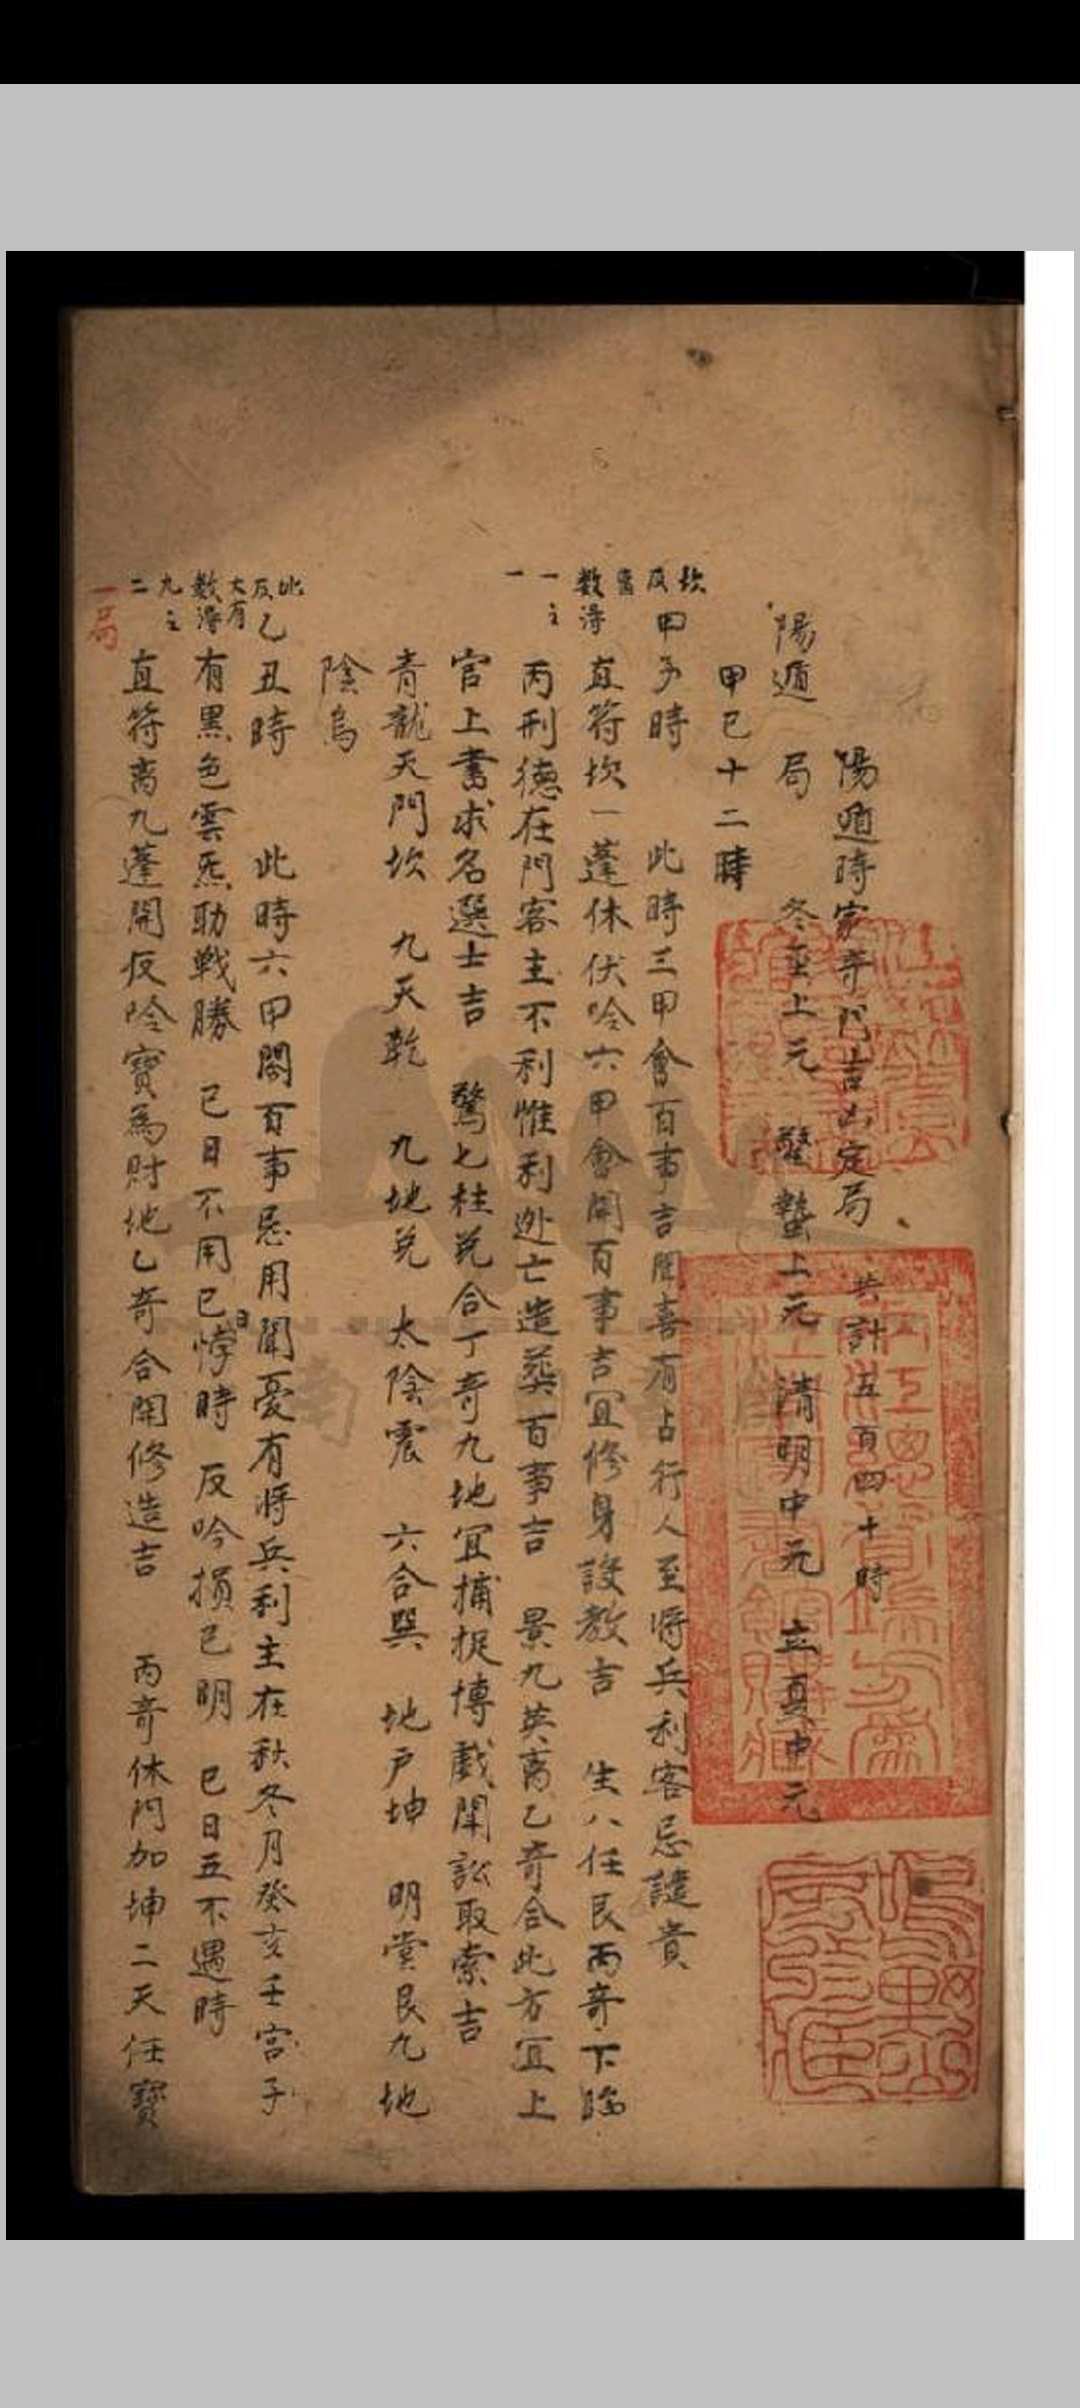 陽遁時家奇門吉凶定局　共計五百四十時
陽遁　局　冬至上元　驚蟄上元　清明中元　立夏中元
甲己十二時
甲子時　此時三甲會百事吉聞喜有占行人至將兵利客忌譴責
直符坎一蓬休伏吟六甲會開百事吉宜修身設教吉　生八任艮丙奇下臨
丙刑德在門客主不利惟利逃亡造葬百事吉　景九英离乙奇合此方宜上
官上書求名選士吉　驚七柱兌合丁奇九地宜捕捉博戲閗訟取索吉
青龍天門坎　九天乾　九地兌　太陰震　六合巽　地户坤　明堂艮九地
陰
乙丑時　此時六甲閤百事忌用聞憂有將兵利主在秋冬月癸亥壬宮子
有黑色雲炁助戰勝　己日不用巳悖時　反吟損己明　巳日五不遇時
直符离九蓬開反吟寶為財地乙奇合開修造吉　丙奇休門加坤二天任寶
坎
反
數得
一主
一
比
反
大有
數得
九主
二
一局